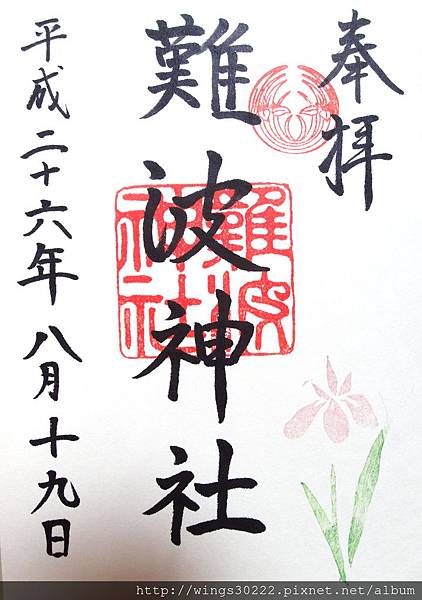 奉拝
難波神社
難波神社
平成二十六年八月十九日
http://wings30222.pixnet.net/album